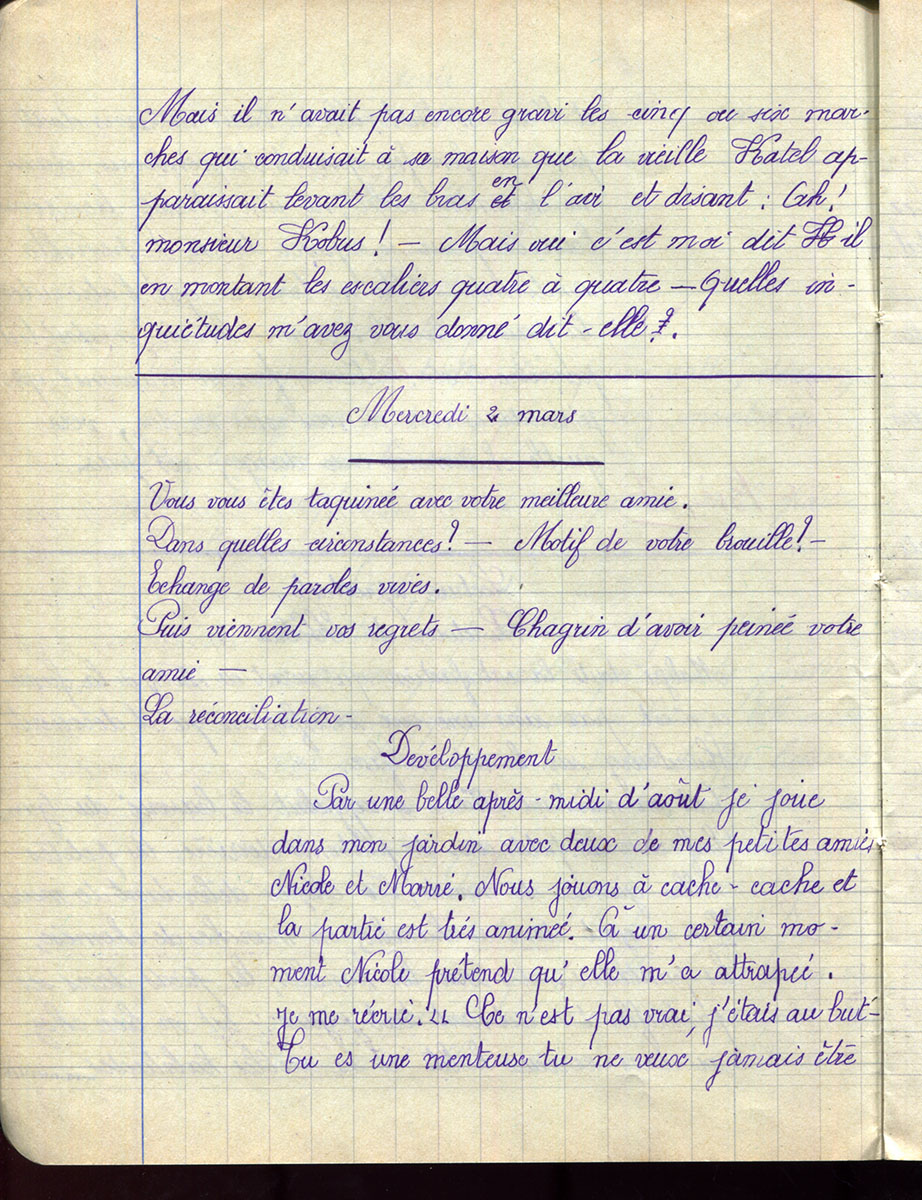 Mais il n'avait pas encore gravi les cinq ou six mar-
ches qui conduisait à sa maison que la vieille Katel ap-
paraissait levant les bras en l'air et disant : Ah !
monsieur Kobus ! — Mais oui c'est moi dit il
en montant les escaliers quatre à quatre — Quelles in-
quiétudes m'avez vous donné dit - elle ?.
Mercredi 2 mars
Vous vous êtes taquinée avec votre meilleure amie.
Dans quelles circonstances ? — Motif de votre brouille ? —
Echange de paroles vives.
Puis viennent vos regrets — Chagrin d'avoir peinée votre
amie —
La réconciliation -
Developpement
Par une belle après - midi d'août je joue
dans mon jardin avec deux de mes petites amies
Nicole et Marie. Nous jouons à cache - cache et
la partie est trés animée. A un certain mo-
ment Nicole prétend qu'elle m'a attrapée.
Je me récrie. " Ce n'est pas vrai, j'étais au but -
Tu es une menteuse tu ne veux jamais être